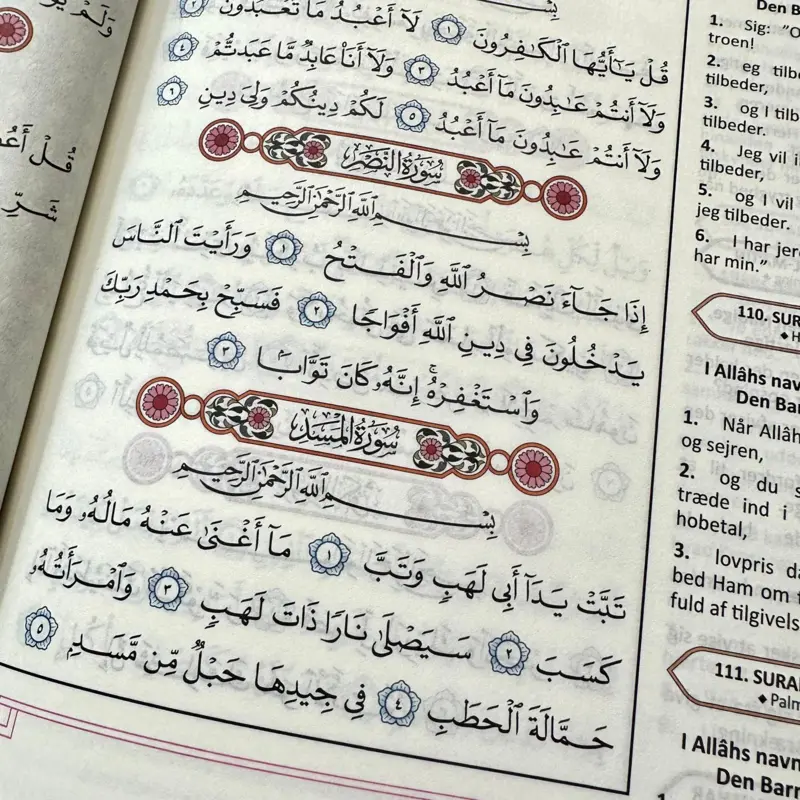 قُلْ يَـٰٓأَيُّهَا ٱلْكَـٰفِرُونَ ١ لَآ أَعْبُدُ مَا تَعْبُدُونَ ٢
وَلَآ أَنتُمْ عَـٰبِدُونَ مَآ أَعْبُدُ ٣ وَلَآ أَنَا۠ عَابِدٌ مَّا عَبَدتُّمْ ٤
وَلَآ أَنتُمْ عَـٰبِدُونَ مَآ أَعْبُدُ ٥ لَكُمْ دِينُكُمْ وَلِىَ دِينِ ٦
سُورَةُ النَّصْرِ
بِسْمِ ٱللَّهِ ٱلرَّحْمَـٰنِ ٱلرَّحِيمِ
إِذَا جَآءَ نَصْرُ ٱللَّهِ وَٱلْفَتْحُ ١ وَرَأَيْتَ ٱلنَّاسَ
يَدْخُلُونَ فِى دِينِ ٱللَّهِ أَفْوَاجًا ٢ فَسَبِّحْ بِحَمْدِ رَبِّكَ
وَٱسْتَغْفِرْهُ ۚ إِنَّهُۥ كَانَ تَوَّابًۢا ٣
سُورَةُ المَسَدِ
بِسْمِ ٱللَّهِ ٱلرَّحْمَـٰنِ ٱلرَّحِيمِ
تَبَّتْ يَدَآ أَبِى لَهَبٍ وَتَبَّ ١ مَآ أَغْنَىٰ عَنْهُ مَالُهُۥ وَمَا
كَسَبَ ٢ سَيَصْلَىٰ نَارًا ذَاتَ لَهَبٍ ٣ وَٱمْرَأَتُهُۥ
حَمَّالَةَ ٱلْحَطَبِ ٤ فِى جِيدِهَا حَبْلٌ مِّن مَّسَدٍۭ ٥
Den
1. Sig:
troen!
2. eg
tilbeder,
3. og I
tilbeder.
4. Jeg vil
tilbeder,
5. og I vil
jeg tilbeder.
6. I har
har min."
110.
I Allâhs
Den
1. Når
og sejren,
2. og du
træde ind i
hobetal,
3. lovpris
bed Ham om
fuld af
111.
I Allâhs
Den
قُلْ
شَرِّ